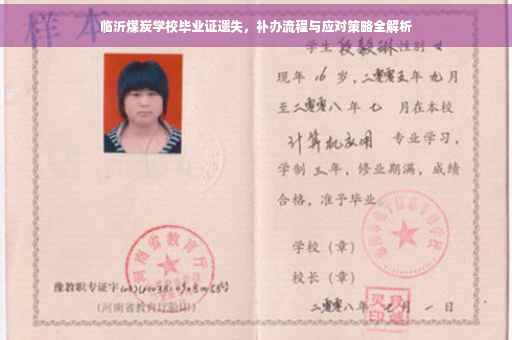 样本
临沂煤炭学校毕业证遗失，补办流程与应对策略全解析
学生段毅琳性别女
现年16岁，二零零五年九月
至二零零八年七月在本校
计算机应用 专业学习，
学制三年，修业期满，成绩
合格，准予毕业
学校（章）
校长（章）
二零零八年七月一日
河南省教育厅
豫教职专证字
（河南省教育厅验印）